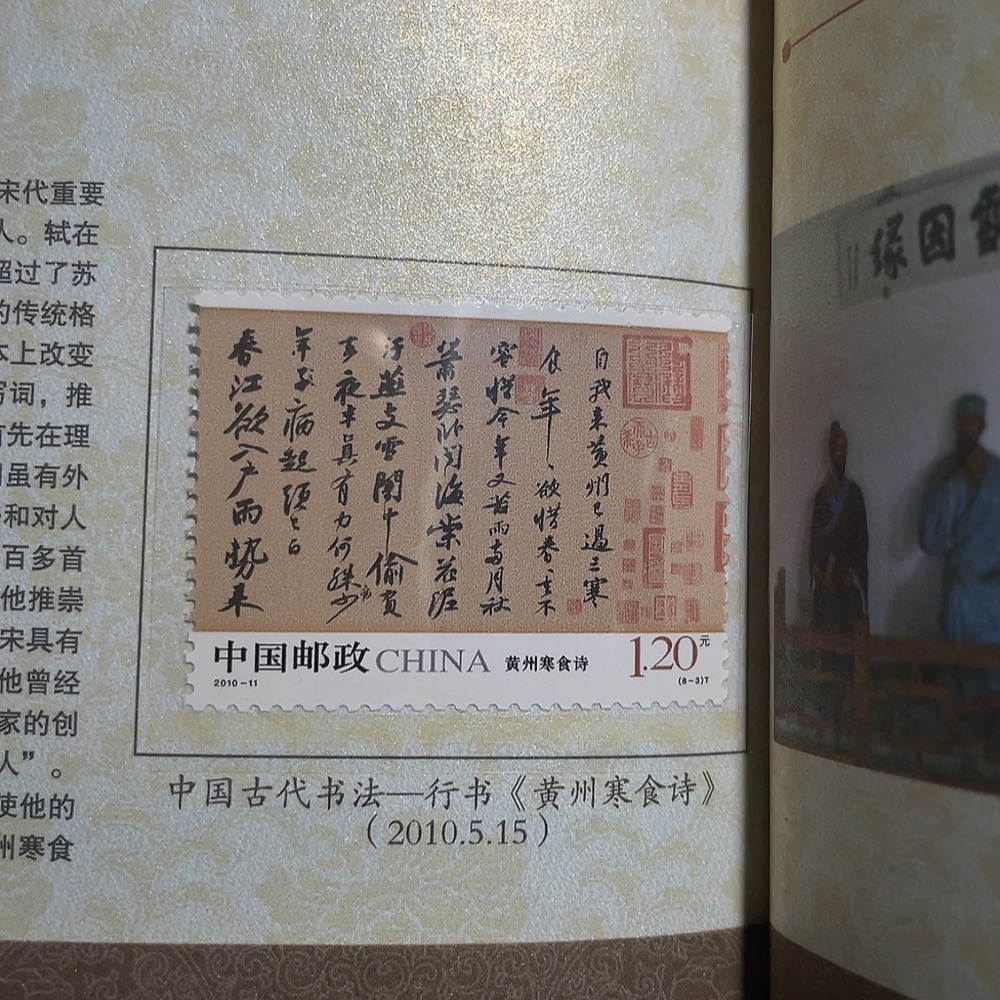 宋代重要
人。轼在
超过了苏
的传统格
本上改变
写词，推
首先在理
虽有外
和对人
百多首
他推崇
宋具有
他曾经
家的创
人”。
使他的
州寒食
自我来黄州已过三寒
食年、欲惜春春不
容惜今年又苦雨两月秋
萧瑟卧闻海棠花泥
汙燕支雪闇中偷负
去夜半真有力何殊少
年子病起须已白
春江欲入户雨势来
中国邮政 CHINA 黄州寒食诗 1.20元
2010-11 (6-3)T
中国古代书法—行书《黄州寒食诗》
（2010.5.15）
缘因